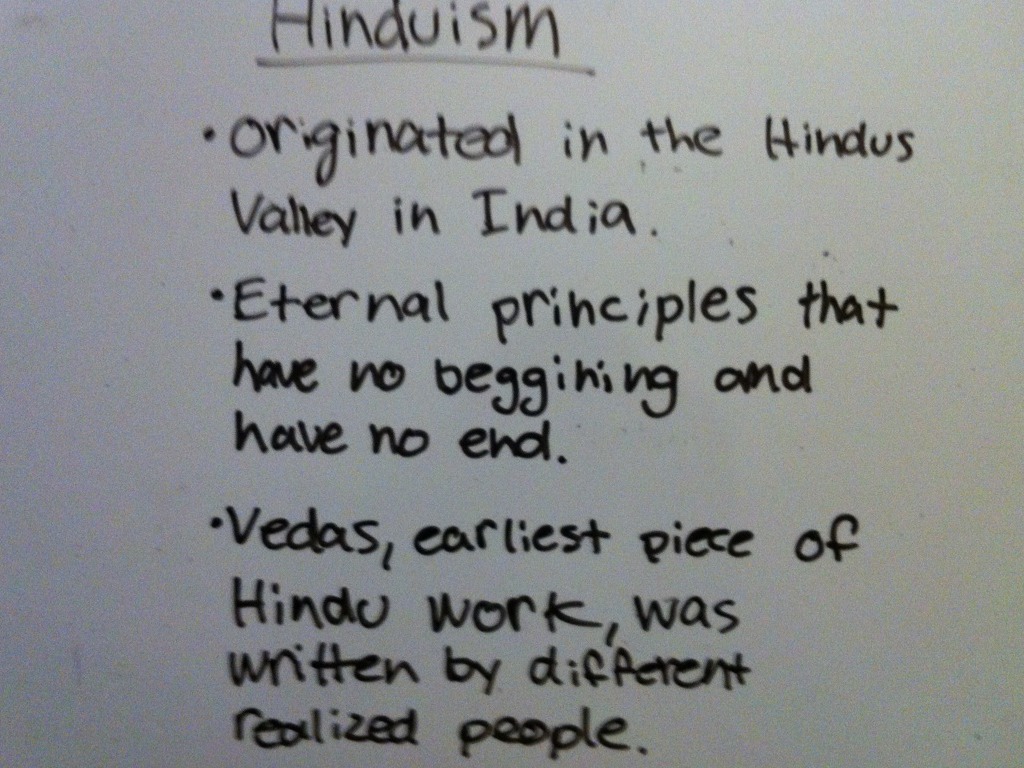 Hinduism
• Originated in the Hindus
Valley in India.
• Eternal principles that
have no beggining and
have no end.
• Vedas, earliest piece of
Hindu work, was
written by different
realized people.